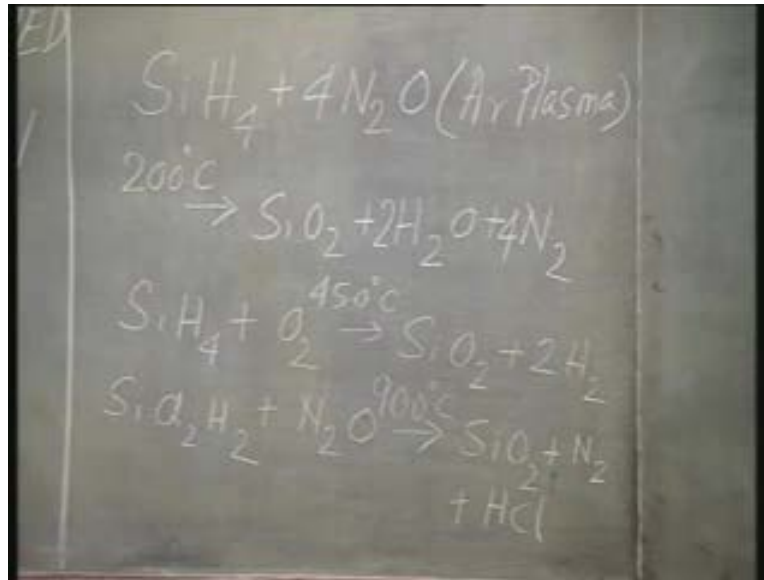 ED
SiH₄ + 4N₂O (Ar Plasma)
200°C
→ SiO₂ + 2H₂O + 4N₂
SiH₄ + O₂ 450°C → SiO₂ + 2H₂
SiCl₂H₂ + N₂O 900°C → SiO₂ + N₂
+ HCl